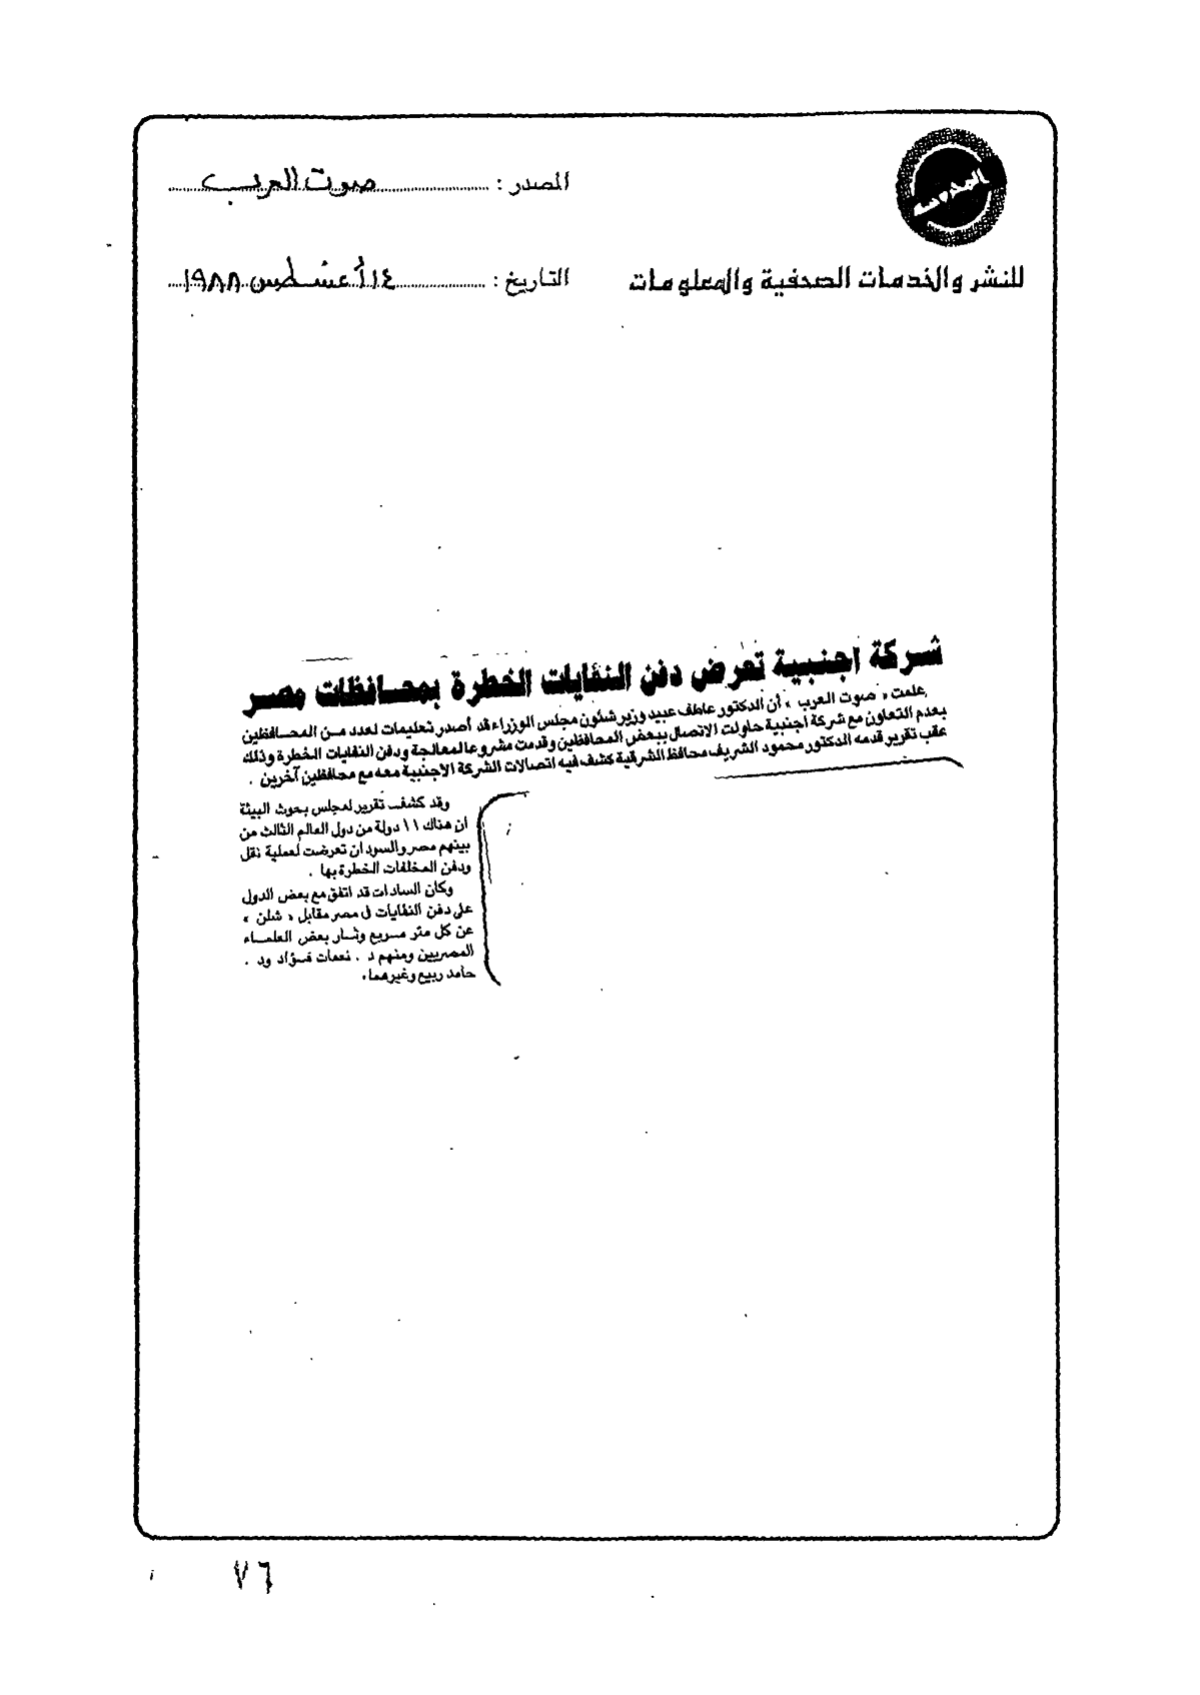 المصدر : صوت العرب
للنشر والخدمات الصحفية والمعلومات
التاريخ : ١٤ أغسطس ١٩٨٨
شركة اجنبية تعرض دفن النفايات الخطرة بمحافظات مصر
علمت « صوت العرب » أن الدكتور عاطف عبيد وزير شئون مجلس الوزراء قد أصدر تعليمات لعدد من المحافظين
بعدم التعاون مع شركة اجنبية حاولت الاتصال ببعض المحافظين وقدمت مشروعا لمعالجة ودفن النفايات الخطرة وذلك
عقب تقرير قدمه الدكتور محمود الشريف محافظ الشرقية كشف فيه اتصالات الشركة الاجنبية معه مع محافظين آخرين .
وقد كشف تقرير لمجلس بحوث البيئة
أن هناك ١١ دولة من دول العالم الثالث من
بينهم مصر والسودان تعرضت لعملية نقل
ودفن المخلفات الخطرة بها .
وكان السادات قد اتفق مع بعض الدول
على دفن النفايات فى مصر مقابل « شلن »
عن كل متر مربع وثار بعض العلماء
المصريين ومنهم د . نعمات فؤاد ود .
حامد ربيع وغيرهما .
٧٦